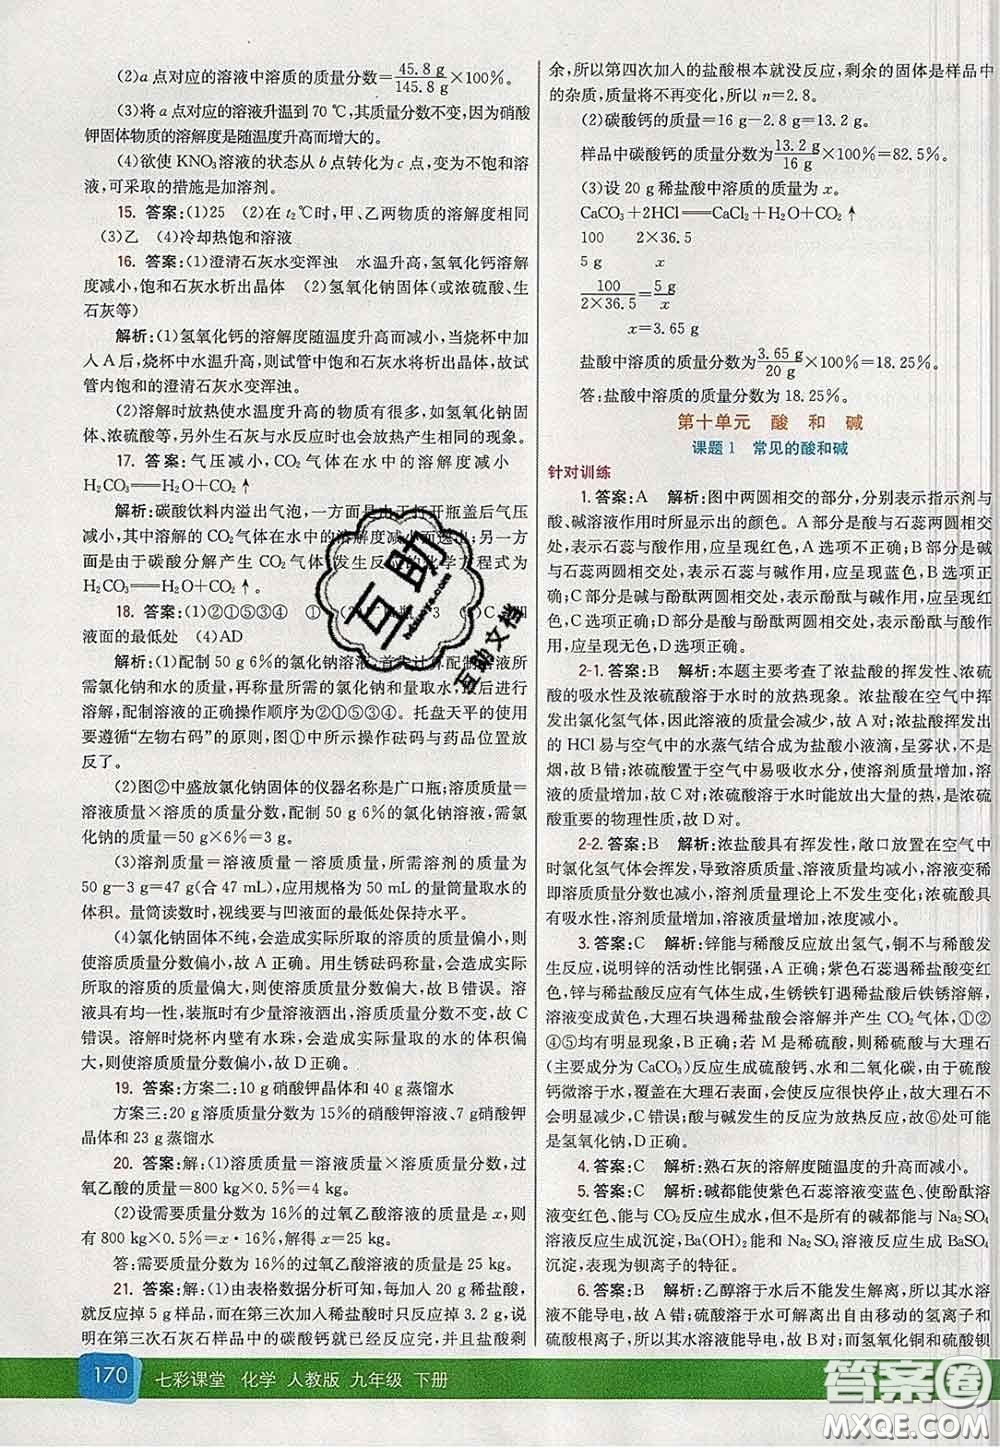 (2)a点对应的溶液中溶质的质量分数=45.8 g/145.8 g×100%。
(3)将a点对应的溶液升温到70 ℃,其质量分数不变,因为硝酸
钾固体物质的溶解度是随温度升高而增大的。
(4)欲使KNO₃溶液的状态从b点转化为c点,变为不饱和溶
液,可采取的措施是加溶剂。
15. 答案:(1)25 (2)在t₂℃时,甲、乙两物质的溶解度相同
(3)乙 (4)冷却热饱和溶液
16. 答案:(1)澄清石灰水变浑浊 水温升高,氢氧化钙溶解
度减小,饱和石灰水析出晶体 (2)氢氧化钠固体(或浓硫酸、生
石灰等)
解析:(1)氢氧化钙的溶解度随温度升高而减小,当烧杯中加
入A后,烧杯中水温升高,则试管中饱和石灰水将析出晶体,故试
管内饱和的澄清石灰水变浑浊。
(2)溶解时放热使水温度升高的物质有很多,如氢氧化钠固
体、浓硫酸等,另外生石灰与水反应时也会放热产生相同的现象。
17. 答案:气压减小,CO₂气体在水中的溶解度减小
H₂CO₃═══H₂O+CO₂↑
解析:碳酸饮料内溢出气泡,一方面是由于打开瓶盖后气压
减小,其中溶解的CO₂气体在水中的溶解度减小而逸出;另一方
面是由于碳酸分解产生CO₂气体,发生反应的化学方程式为
H₂CO₃═══H₂O+CO₂↑
18. 答案:(1)②①⑤③④ ① 3
液面的最低处 (4)AD
解析:(1)配制50 g 6%的氯化钠溶液,首先计算配制溶液所
需氯化钠和水的质量,再称量所需的氯化钠和量取水,最后进行
溶解,配制溶液的正确操作顺序为②①⑤③④。托盘天平的使用
要遵循“左物右码”的原则,图①中所示操作砝码与药品位置放
反了。
(2)图②中盛放氯化钠固体的仪器名称是广口瓶;溶质质量
=溶液质量×溶质的质量分数,配制50 g 6%的氯化钠溶液,需氯
化钠的质量=50 g×6%=3 g。
(3)溶剂质量=溶液质量-溶质质量,所需溶剂的质量为
50 g-3 g=47 g(合47 mL),应用规格为100 mL的量筒量取水的
体积。量筒读数时,视线要与凹液面的最低处保持水平。
(4)氯化钠固体不纯,会造成实际所取的溶质的质量偏小,则
使溶质质量分数偏小,故A正确。用生锈砝码称量,会造成实际
所取的溶质的质量偏大,则使溶质质量分数偏大,故B错误。溶
液具有均一性,装瓶时有少量溶液洒出,溶质质量分数不变,故C
错误。溶解时烧杯内壁有水珠,会造成实际量取的水的体积偏
大,则使溶质质量分数偏小,故D正确。
19. 答案:方案二:10 g硝酸钾晶体和40 g蒸馏水
方案三:20 g溶质质量分数为15%的硝酸钾溶液、7 g硝酸钾
晶体和23 g蒸馏水
20. 答案:解:(1)溶质质量=溶液质量×溶质质量分数,过
氧乙酸的质量=800 kg×0.5%=4 kg。
(2)设需要质量分数为16%的过氧乙酸溶液的质量是x,则
有800 kg×0.5%=x·16%,解得x=25 kg。
答:需要质量分数为16%的过氧乙酸溶液的质量是25 kg。
21. 答案:解:(1)由表格数据分析可知,每加入20 g稀盐酸,
就反应掉5 g样品,而在第三次加入稀盐酸时只反应掉3.2 g,这
说明在第三次石灰石样品中的碳酸钙就已经反应完,并且盐酸剩
余,所以第四次加入的盐酸根本就没反应,剩余的固体是样品中
的杂质,质量将不再变化,所以n=2.8。
(2)碳酸钙的质量=16 g-2.8 g=13.2 g。
样品中碳酸钙的质量分数为13.2 g/16 g×100%=82.5%。
(3)设20 g稀盐酸中溶质的质量为x。
CaCO₃+2HCl═══CaCl₂+H₂O+CO₂↑
100 2×36.5
5 g x
100/2×36.5=5 g/x
x=3.65 g
盐酸中溶质的质量分数为3.65 g/20 g×100%=18.25%。
答:盐酸中溶质的质量分数为18.25%。
第十单元 酸 和 碱
课题1 常见的酸和碱
针对训练
1. 答案:A 解析:图中两圆相交的部分,分别表示指示剂与
酸、碱溶液作用时所显示出的颜色。A部分是酸与石蕊两圆相交
处,表示石蕊与酸作用,应呈现红色,A选项不正确;B部分是碱
与石蕊两圆相交处,表示石蕊与碱作用,应呈现蓝色,B选项正
确;C部分是碱与酚酞两圆相交处,表示酚酞与碱作用,应呈现红
色,C选项正确;D部分是酸与酚酞两圆相交处,表示酚酞与酸作
用,应呈现无色,D选项正确。
2-1. 答案:B 解析:本题主要考查了浓盐酸的挥发性、浓硫
酸的吸水性及浓硫酸溶于水时的放热现象。浓盐酸在空气中挥
发出氯化氢气体,因此溶液的质量会减少,故A对;浓盐酸挥发出
的HCl易与空气中的水蒸气结合成为盐酸小液滴,呈雾状,不是
烟,故B错;浓硫酸置于空气中易吸收水分,使溶剂质量增加,溶
液的质量增加,故C对;浓硫酸溶于水时能放出大量的热,是浓硫
酸重要的物理性质,故D对。
2-2. 答案:B 解析:浓盐酸具有挥发性,敞口放置在空气中
时氯化氢气体会挥发,导致溶质质量、溶液质量均减小,溶液变稀
即溶质质量分数也减小,溶剂质量理论上不发生变化;浓硫酸具
有吸水性,溶液质量增加,溶剂质量增加,浓度减小。
3. 答案:C 解析:锌能与稀酸反应放出氢气,铜不与稀酸发
生反应,说明锌的活动性比铜强,A正确;紫色石蕊遇稀盐酸变红
色,锌与稀盐酸反应有气体生成,生锈铁钉遇稀盐酸后铁锈溶解,
溶液变成黄色,大理石块遇稀盐酸会溶解并产生CO₂气体,①②
④⑤均有明显现象,B正确;若M是稀硫酸,稀硫酸与大理石
(主要成分为CaCO₃)反应生成硫酸钙、水和二氧化碳,由于硫酸
钙微溶于水,覆盖在大理石表面,使反应很快停止,故大理石不会
很快减少至消失,C错误;酸与碱发生的反应为放热反应,故⑥处可能
是氢氧化钠,D正确。
4. 答案:C 解析:熟石灰的溶解度随温度的升高而减小。
5. 答案:C 解析:碱都能使紫色石蕊溶液变蓝色、使酚酞溶
液变红色、能与CO₂反应生成水,但不是所有的碱都能与Na₂SO₄
溶液反应生成沉淀,Ba(OH)₂能与Na₂SO₄溶液反应生成BaSO₄
沉淀,表现为钡离子的特征。
6. 答案:B 解析:乙醇溶于水后不能发生解离,所以其水溶
液不能导电,故A错;硫酸溶于水可解离出自由移动的氢离子和
硫酸根离子,所以其溶液能导电,故B对;而氢氧化铜和硫酸钡
170 七彩课堂 化学 人教版 九年级 下册
互助
hdzuoye.com
互助文档
答案圈
MXQE.COM